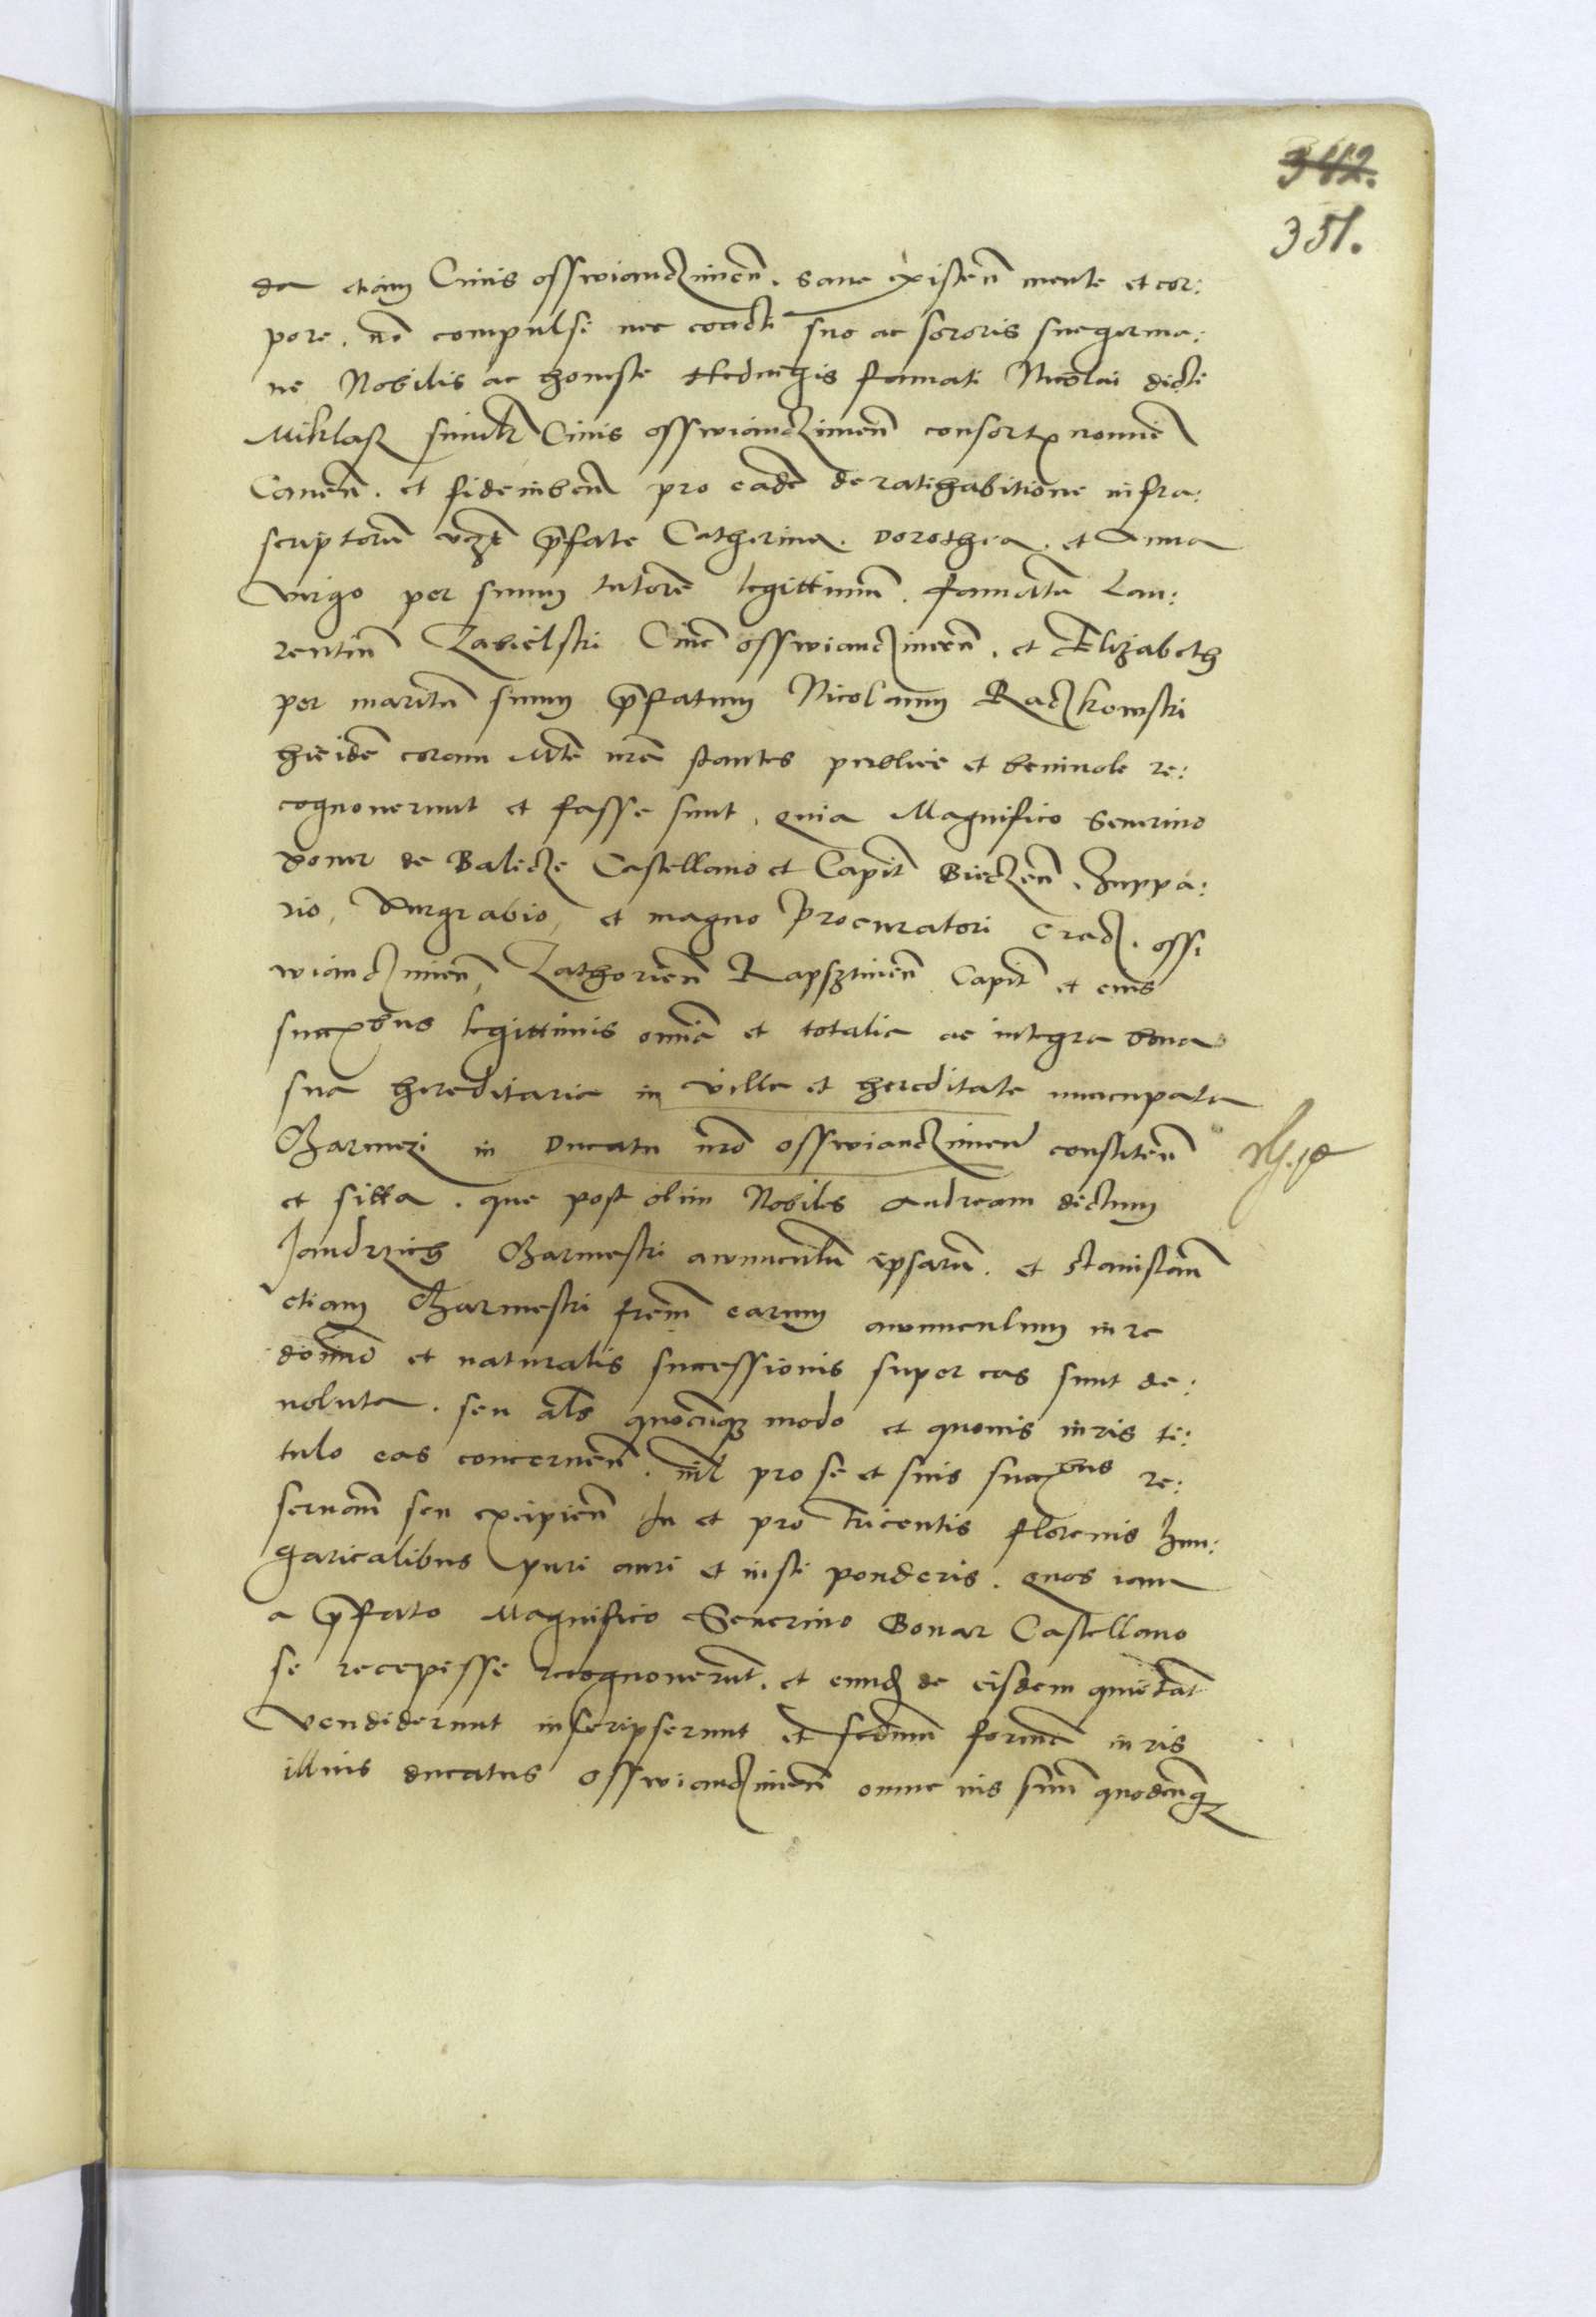 342.
351.
da etiam Civis osswiandzimen̄. sane existen̄ mente et cor:
pore. nō compulsi nec coacti suo ac sororis sue germa:
ne Nobilis ac honeste Hedvegis famati Nicolai dicti
Miklass simil̄r Civis osswiandzimen̄ consort nomīe
Caven̄. et fideiuben̄ pro eadē de ratihabitione infra:
scriptorū vczt p̄fate Catherina. Dorothea. et Anna
virgo per suum tutorē legittimū. famatū Lau:
rentiū Zabielski Civē osswiandzimeñ. et Elizabeth
per maritū suum p̄fatum Nicolaum Raczkowski
hic idē coram Mte nrā stantes publice et benivole re:
cognoverunt et fasse sunt, quia Magnifico Severino
Boner de Balicze Castellano et Capit̄ Biecen̄. Zuppa:
rio, Burgrabio, et magno Procuratori Crac. oss:
wiandzimen̄, Zathorien̄ Rapsztinen̄ Capit̄ et eius
succ̄bus legittimis omīa et totalia ac integra bona
sua hereditaria in villa et hereditate nuncupata
Charmezi in Ducatu nrō osswiandzimen̄ consisten̄
et sitta. que post olim Nobiles Andream dictum
Jandrzich Charmeski avunculū ipsarū. et Stanislaū
etiam Charmeski frēm earum avunculum iure
domīo et naturalis successionis super eas sunt de:
voluta. seu al̄s quocūq modo et quovis iuris ti:
tulo eas concernen̄. nil pro se et suis succ̄bus re:
servan̄ seu excipien̄ In et pro tricentis florenis hun:
garicalibus puri auri et iusti ponderis. quos iam
a p̄fato Magnifico Severino Bonar Castellano
se recepisse recognoverūt. et eund̄ de eisdem quietan̄t
vendiderunt inscripserunt et secdum formā iuris
illius ducatus osswiandzimen̄ omne ius suū quodcūq